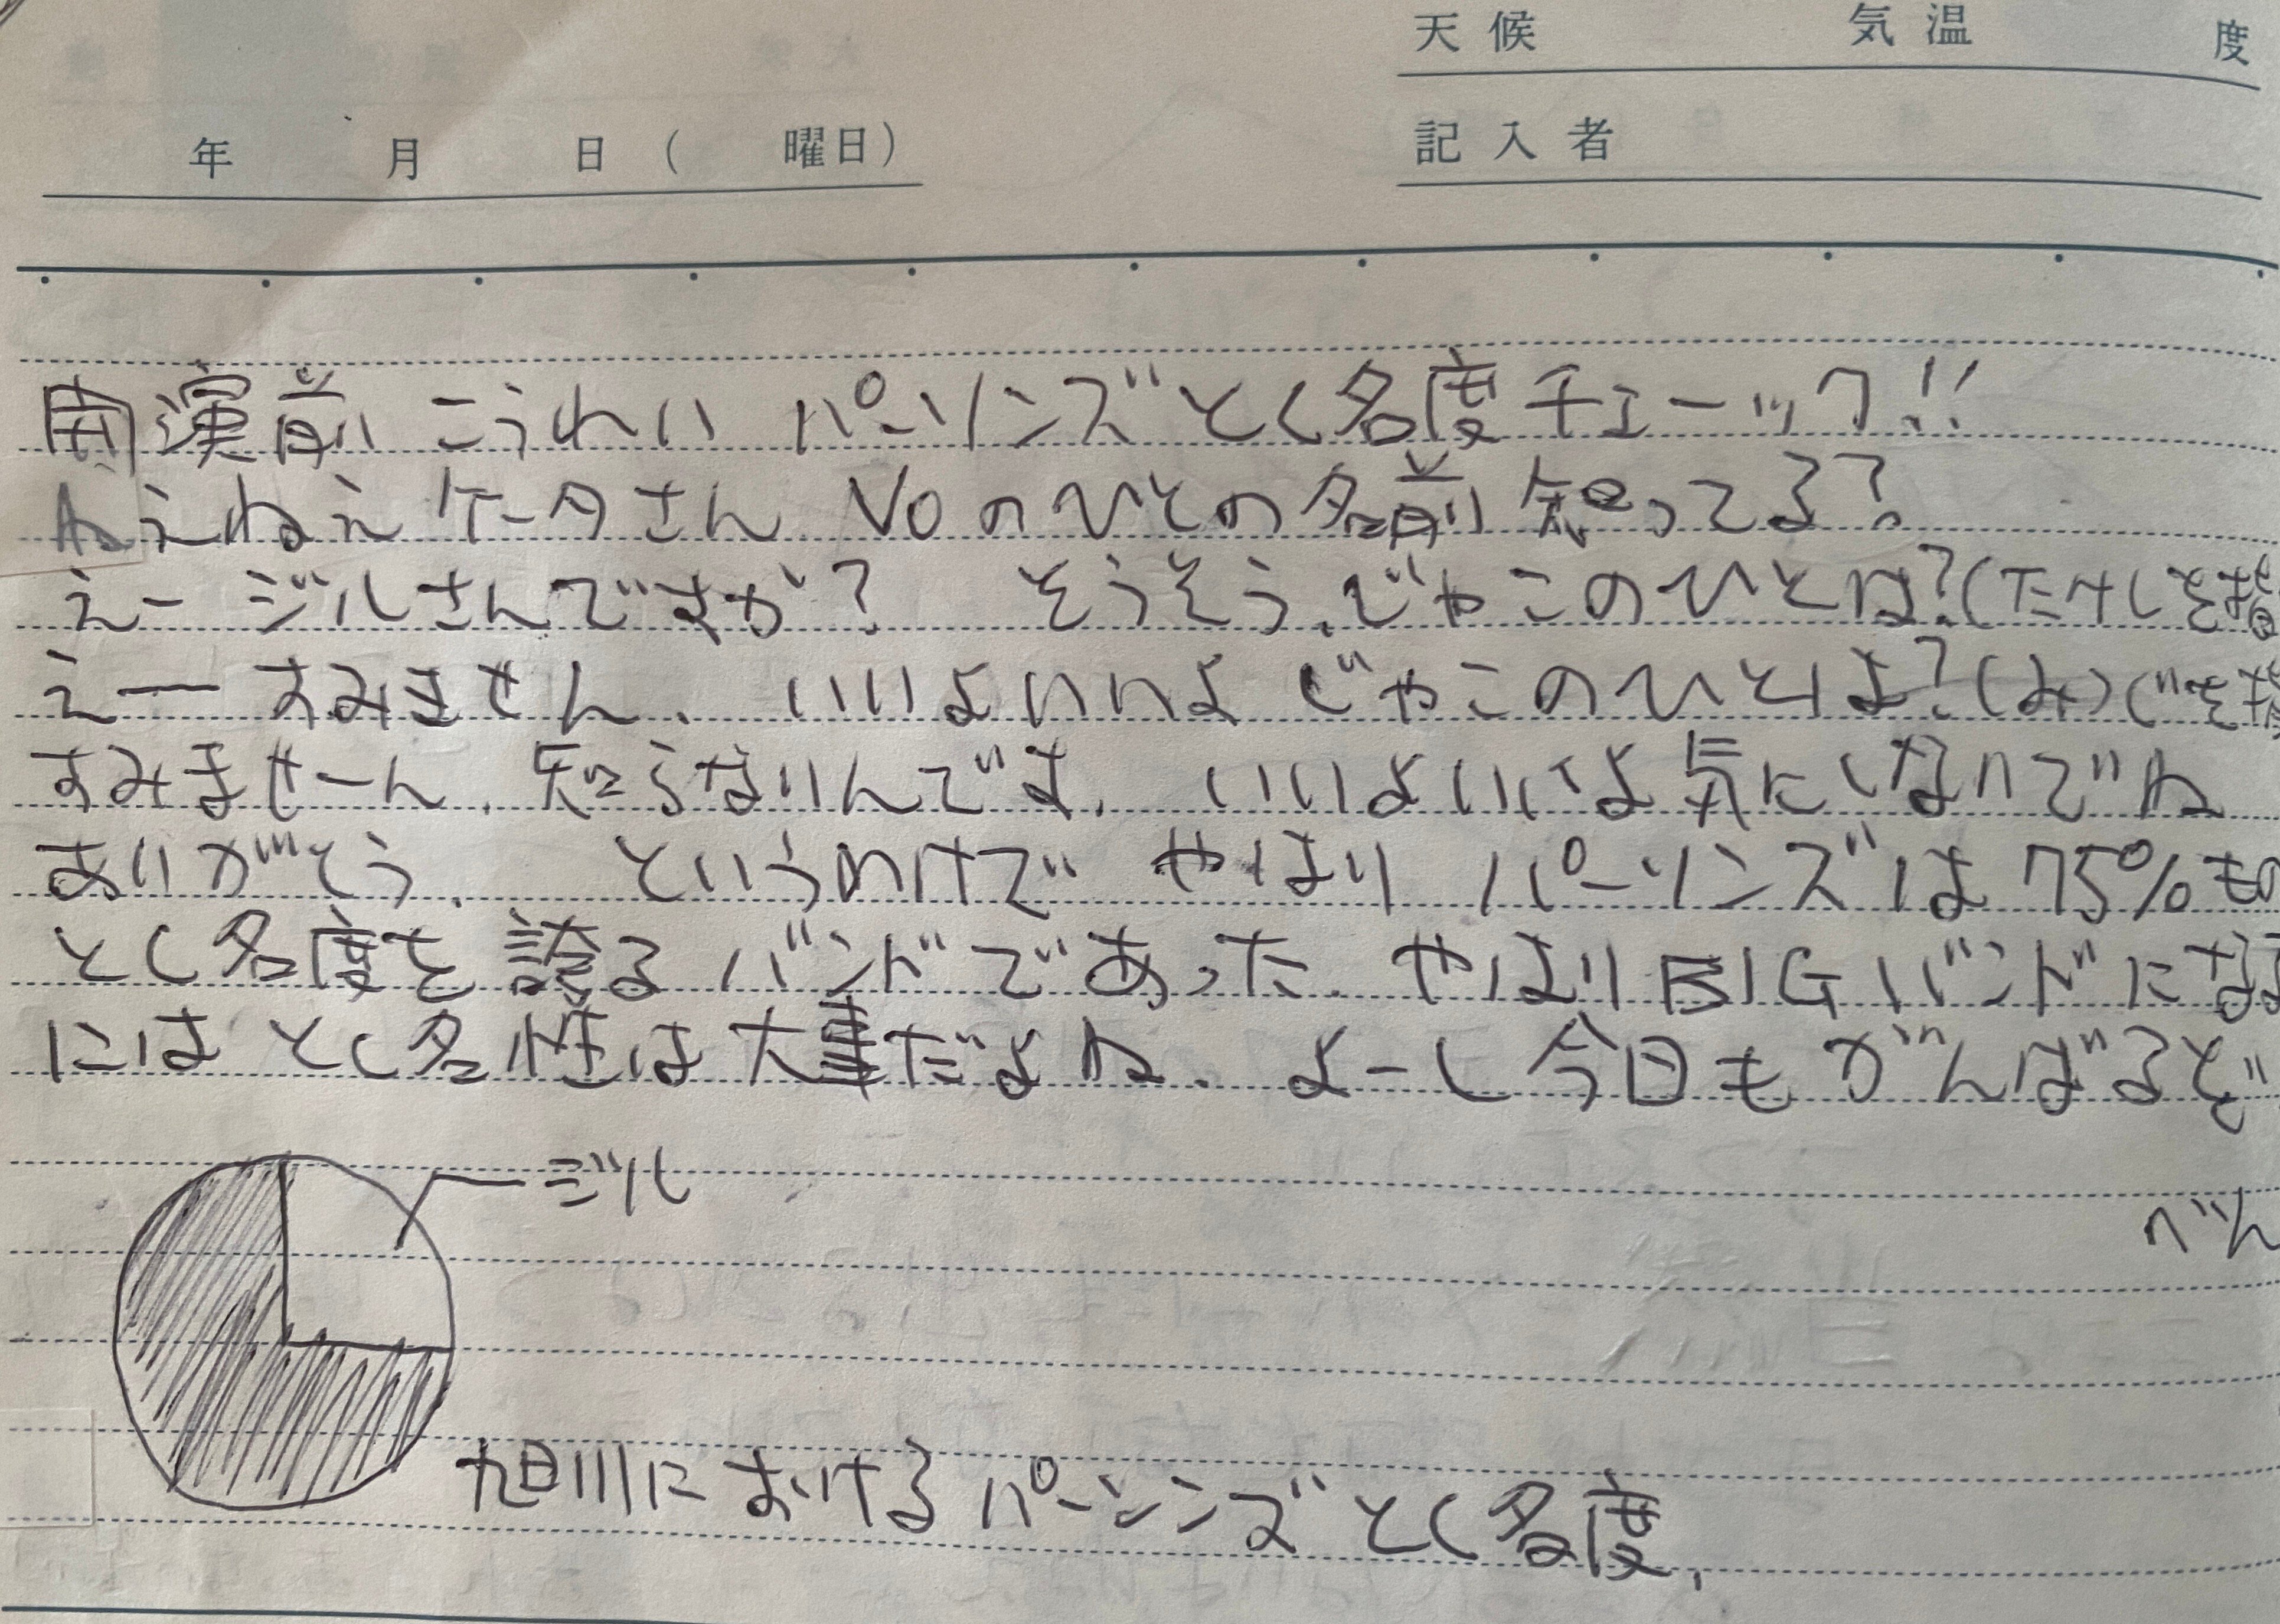 天候 気温 度
年 月 日 ( 曜日)
記入者
開演前 こうれい パーソンズとく名度チェーック!!
ねえねえ ケータさん Voのひとの名前 知ってる?
えー ジルさんですか? そうそう、じゃこのひとは?(たけしを指
えー すみません、 いいよいいよ じゃこのひとは?(みつぐを指
すみませーん、知らないんです、 いいよいいよ気にしないでね
ありがとう、 というわけで やはり パーソンズは75%もの
とく名度を誇るバンドであった、やはりBIGバンドになる
にはとく名性は大事だよね、よーし今日もがんばるぞ
ジル
べん
旭川におけるパーソンズとく名度、